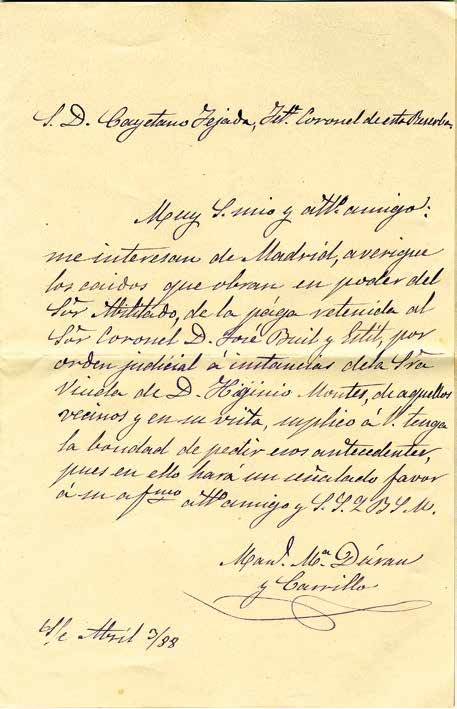 S. D. Cayetano Tejada, Tte. Coronel de esta Reserva.
Muy S. mio y attº. amigo:
me interesan de Madrid, averigue
los caidos que obran en poder del
Sor. Abilitado, de la paga retenida al
Sor. Coronel D. José Buil y, por
orden judicial á instancias de la Sra
Viuda de D. Higinio Montes, de aquellos
vecinos y en su vista, suplico á V. tenga
la bondad de pedir esos antecedentes,
pues en ello hará un señalado favor
á su afmo attº. amigo y S. S. Q B S M.
Manl. Mª. Dúran
y Carrillo
S/c Abril 3/88